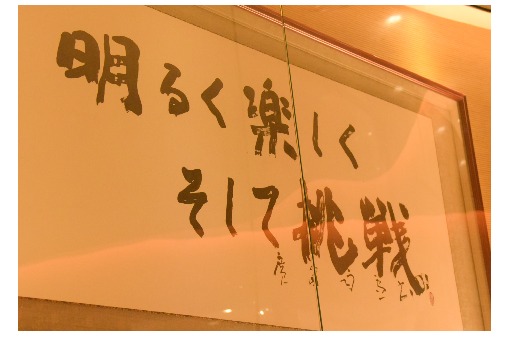 明るく楽しく
そして挑戦